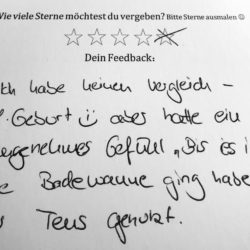 Wie viele Sterne möchtest du vergeben? Bitte Sterne ausmalen ☺
Dein Feedback:
Ich habe keinen Vergleich –
. Geburt ☺ aber hatte ein
angenehmes Gefühl „Bis es i
Badewanne ging habe
Tens genutzt.